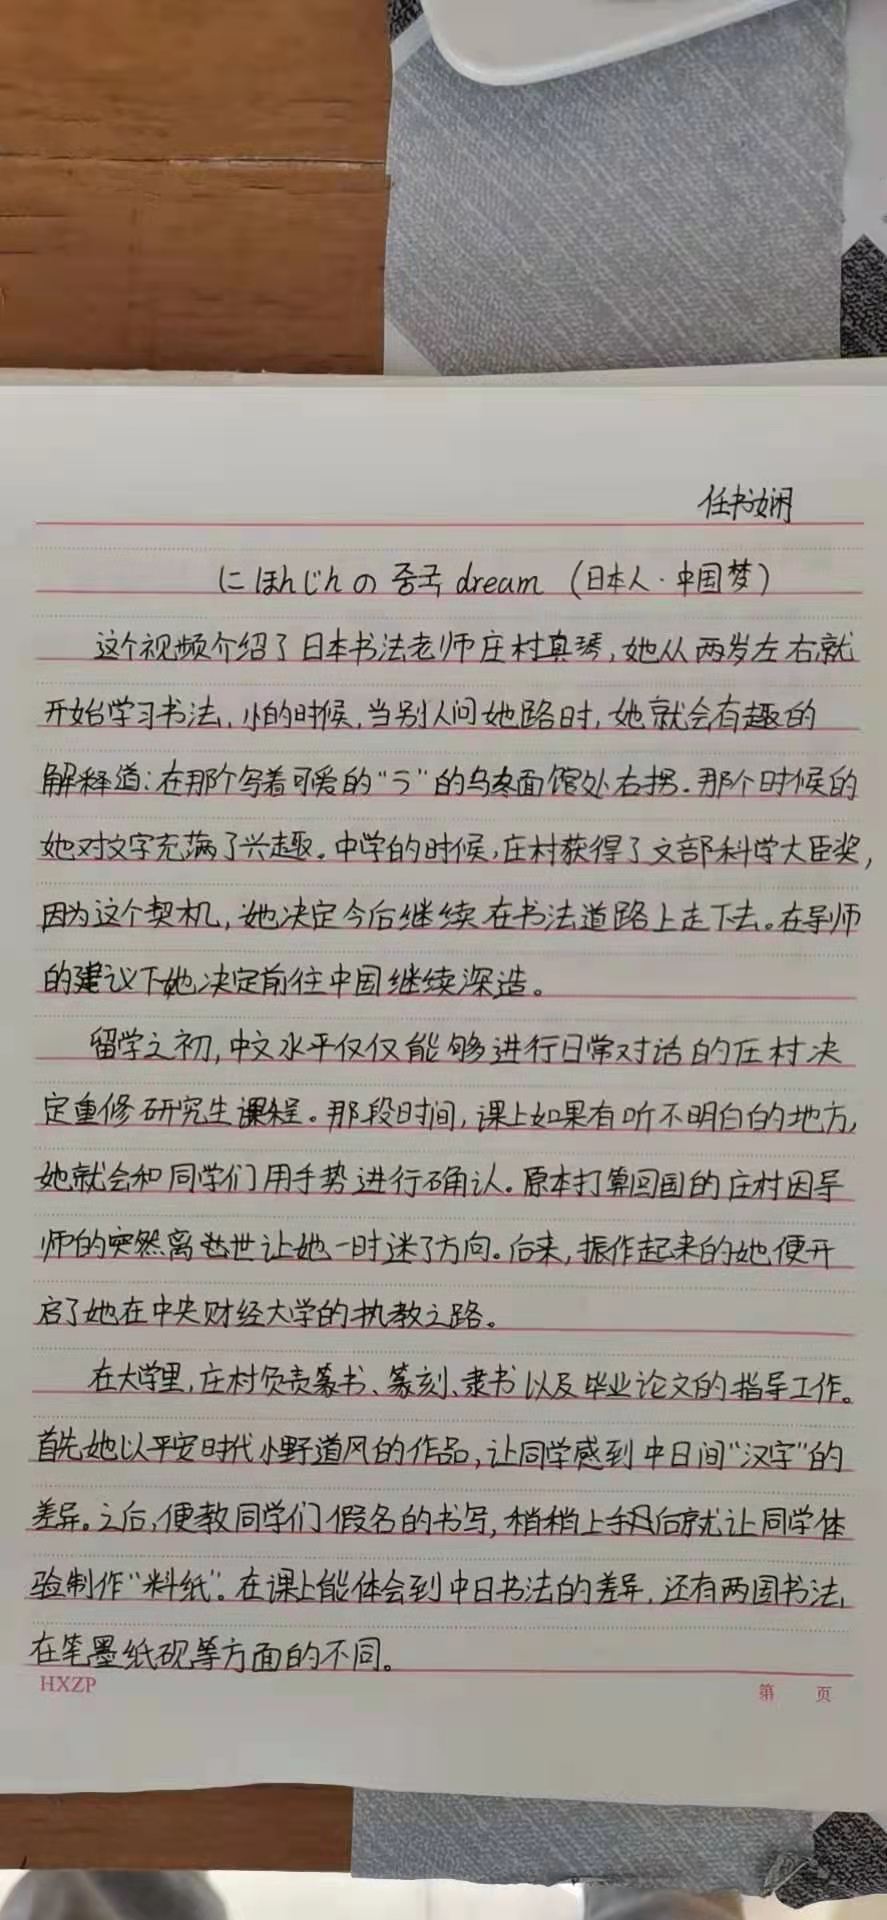 任书娴
にほんじんの 중국 dream (日本人·中国梦)
这个视频介绍了日本书法老师庄村真琴,她从两岁左右就
开始学习书法,小的时候,当别人问她路时,她就会有趣的
解释道:在那个写着可爱的“う”的乌冬面馆处右拐.那个时候的
她对文字充满了兴趣.中学的时候,庄村获得了文部科学大臣奖,
因为这个契机,她决定今后继续在书法道路上走下去。在导师
的建议下她决定前往中国继续深造。
留学之初,中文水平仅仅能够进行日常对话的庄村决
定重修研究生课程。那段时间,课上如果有听不明白的地方,
她就会和同学们用手势进行确认。原本打算回国的庄村因导
师的突然离世让她一时迷了方向。后来,振作起来的她便开
启了她在中央财经大学的执教之路。
在大学里,庄村负责篆书、篆刻、隶书以及毕业论文的指导工作。
首先她以平安时代小野道风的作品,让同学感到中日间“汉字”的
差异。之后,便教同学们假名的书写,稍稍上手后就让同学体
验制作“料纸”。在课上能体会到中日书法的差异,还有两国书法,
在笔墨纸砚等方面的不同。
HXZP 第 页